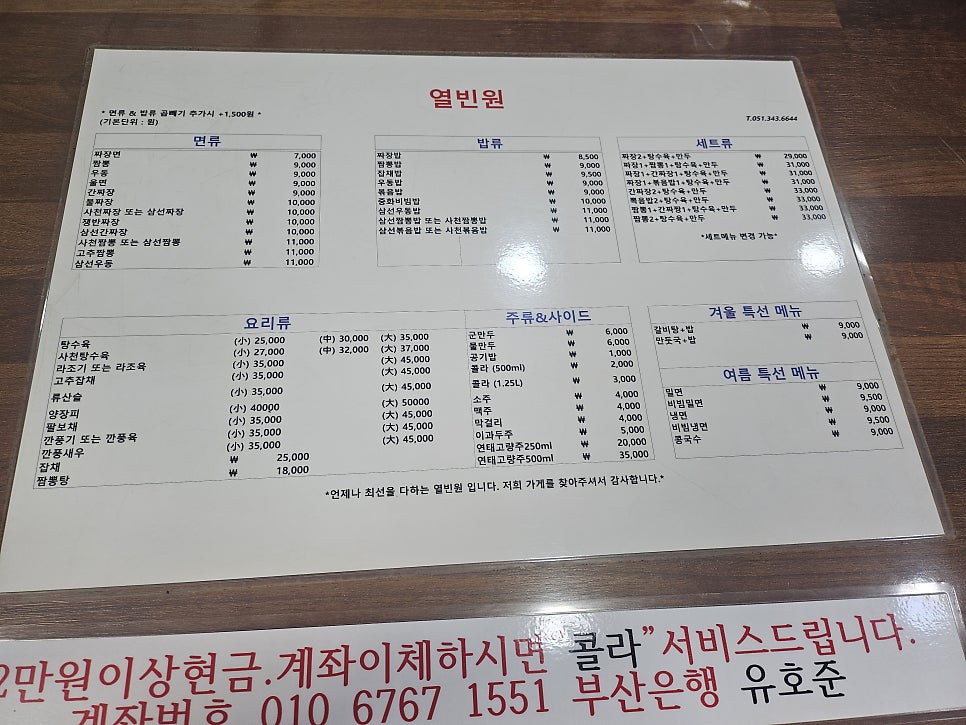 열빈원
* 면류 & 밥류 곱빼기 추가시 +1,500원 *
(기본단위 : 원)
T.051.343.6644
면류
짜장면 ₩ 7,000
짬뽕 ₩ 9,000
우동 ₩ 9,000
울면 ₩ 9,000
간짜장 ₩ 9,000
물짜장 ₩ 10,000
사천짜장 또는 삼선짜장 ₩ 10,000
쟁반짜장 ₩ 10,000
삼선간짜장 ₩ 10,000
사천짬뽕 또는 삼선짬뽕 ₩ 11,000
고추짬뽕 ₩ 11,000
삼선우동 ₩ 11,000
밥류
짜장밥 ₩ 8,500
짬뽕밥 ₩ 9,000
잡채밥 ₩ 9,500
우동밥 ₩ 9,000
볶음밥 ₩ 9,000
중화비빔밥 ₩ 10,000
삼선우동밥 ₩ 11,000
삼선짬뽕밥 또는 사천짬뽕밥 ₩ 11,000
삼선볶음밥 또는 사천볶음밥 ₩ 11,000
세트류
짜장2+탕수육+만두 ₩ 29,000
짜장1+짬뽕1+탕수육+만두 ₩ 31,000
짜장1+간짜장1+탕수육+만두 ₩ 31,000
짜장1+볶음밥1+탕수육+만두 ₩ 31,000
간짜장2+탕수육+만두 ₩ 33,000
볶음밥2+탕수육+만두 ₩ 33,000
짬뽕1+간짜장1+탕수육+만두 ₩ 33,000
짬뽕2+탕수육+만두 ₩ 33,000
*세트메뉴 변경 가능*
요리류
탕수육 (小) 25,000 (中) 30,000 (大) 35,000
사천탕수육 (小) 27,000 (中) 32,000 (大) 37,000
라조기 또는 라조육 (小) 35,000 (大) 45,000
고추잡채 (小) 35,000 (大) 45,000
류산슬 (小) 35,000 (大) 45,000
양장피 (小) 40000 (大) 50000
팔보채 (小) 35,000 (大) 45,000
깐풍기 또는 깐풍육 (小) 35,000 (大) 45,000
깐풍새우 (小) 35,000 (大) 45,000
잡채 ₩ 25,000
짬뽕탕 ₩ 18,000
주류&사이드
군만두 ₩ 6,000
물만두 ₩ 6,000
공기밥 ₩ 1,000
콜라 (500ml) ₩ 2,000
콜라 (1.25L) ₩ 3,000
소주 ₩ 4,000
맥주 ₩ 4,000
막걸리 ₩ 4,000
이과두주 ₩ 5,000
연태고량주250ml ₩ 20,000
연태고량주500ml ₩ 35,000
겨울 특선 메뉴
갈비탕+밥 ₩ 9,000
만둣국+밥 ₩ 9,000
여름 특선 메뉴
밀면 ₩ 9,000
비빔밀면 ₩ 9,500
냉면 ₩ 9,000
비빔냉면 ₩ 9,500
콩국수 ₩ 9,000
*언제나 최선을 다하는 열빈원 입니다. 저희 가게를 찾아주셔서 감사합니다.*
2만원이상현금.계좌이체하시면 "콜라"서비스드립니다.
계좌번호 010 6767 1551 부산은행 유호준